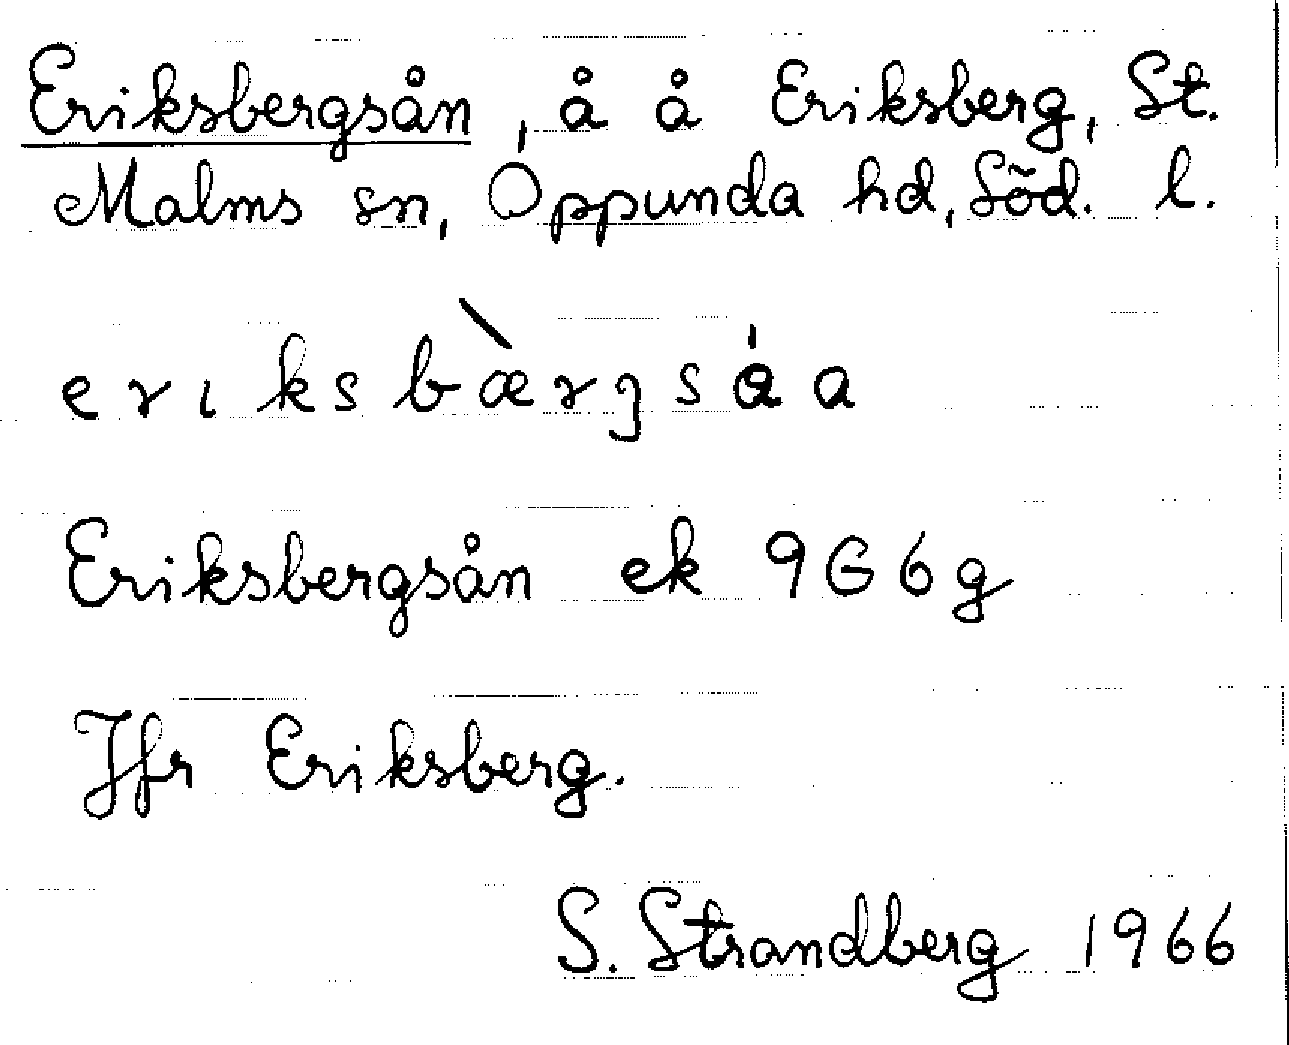 Eriksbergsån, å å Eriksberg, St.
Malms sn, Oppunda hd, Söd. l.
erıksbæ̀rgsáa
Eriksbergsån ek 9G6g
Jfr Eriksberg.
S. Strandberg 1966